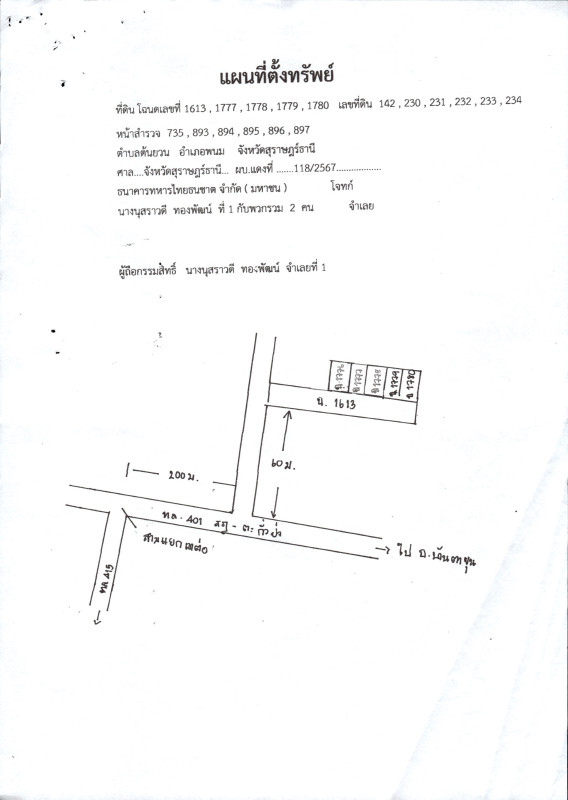 แผนที่ตั้งทรัพย์
ที่ดิน โฉนดเลขที่ 1613 , 1777 , 1778 , 1779 , 1780 เลขที่ดิน 142 , 230 , 231 , 232 , 233 , 234
หน้าสำรวจ 735 , 893 , 894 , 895 , 896 , 897
ตำบลต้นยวน อำเภอพนม จังหวัดสุราษฎร์ธานี
ศาล....จังหวัดสุราษฎร์ธานี... ผบ.แดงที่ .......118/2567.................
ธนาคารทหารไทยธนชาต จำกัด ( มหาชน ) โจทก์
นางนุสราวดี ทองพัฒน์ ที่ 1 กับพวกรวม 2 คน จำเลย
ผู้ถือกรรมสิทธิ์ นางนุสราวดี ทองพัฒน์ จำเลยที่ 1
ฉ.1776
ฉ.1777
ฉ.1778
ฉ.1779
ฉ.1780
ฉ. 1613
60 ม.
200 ม.
ทล. 401 สฎ - ตะกั่วป่า
สามแยก
ไป อ.
ทล 415